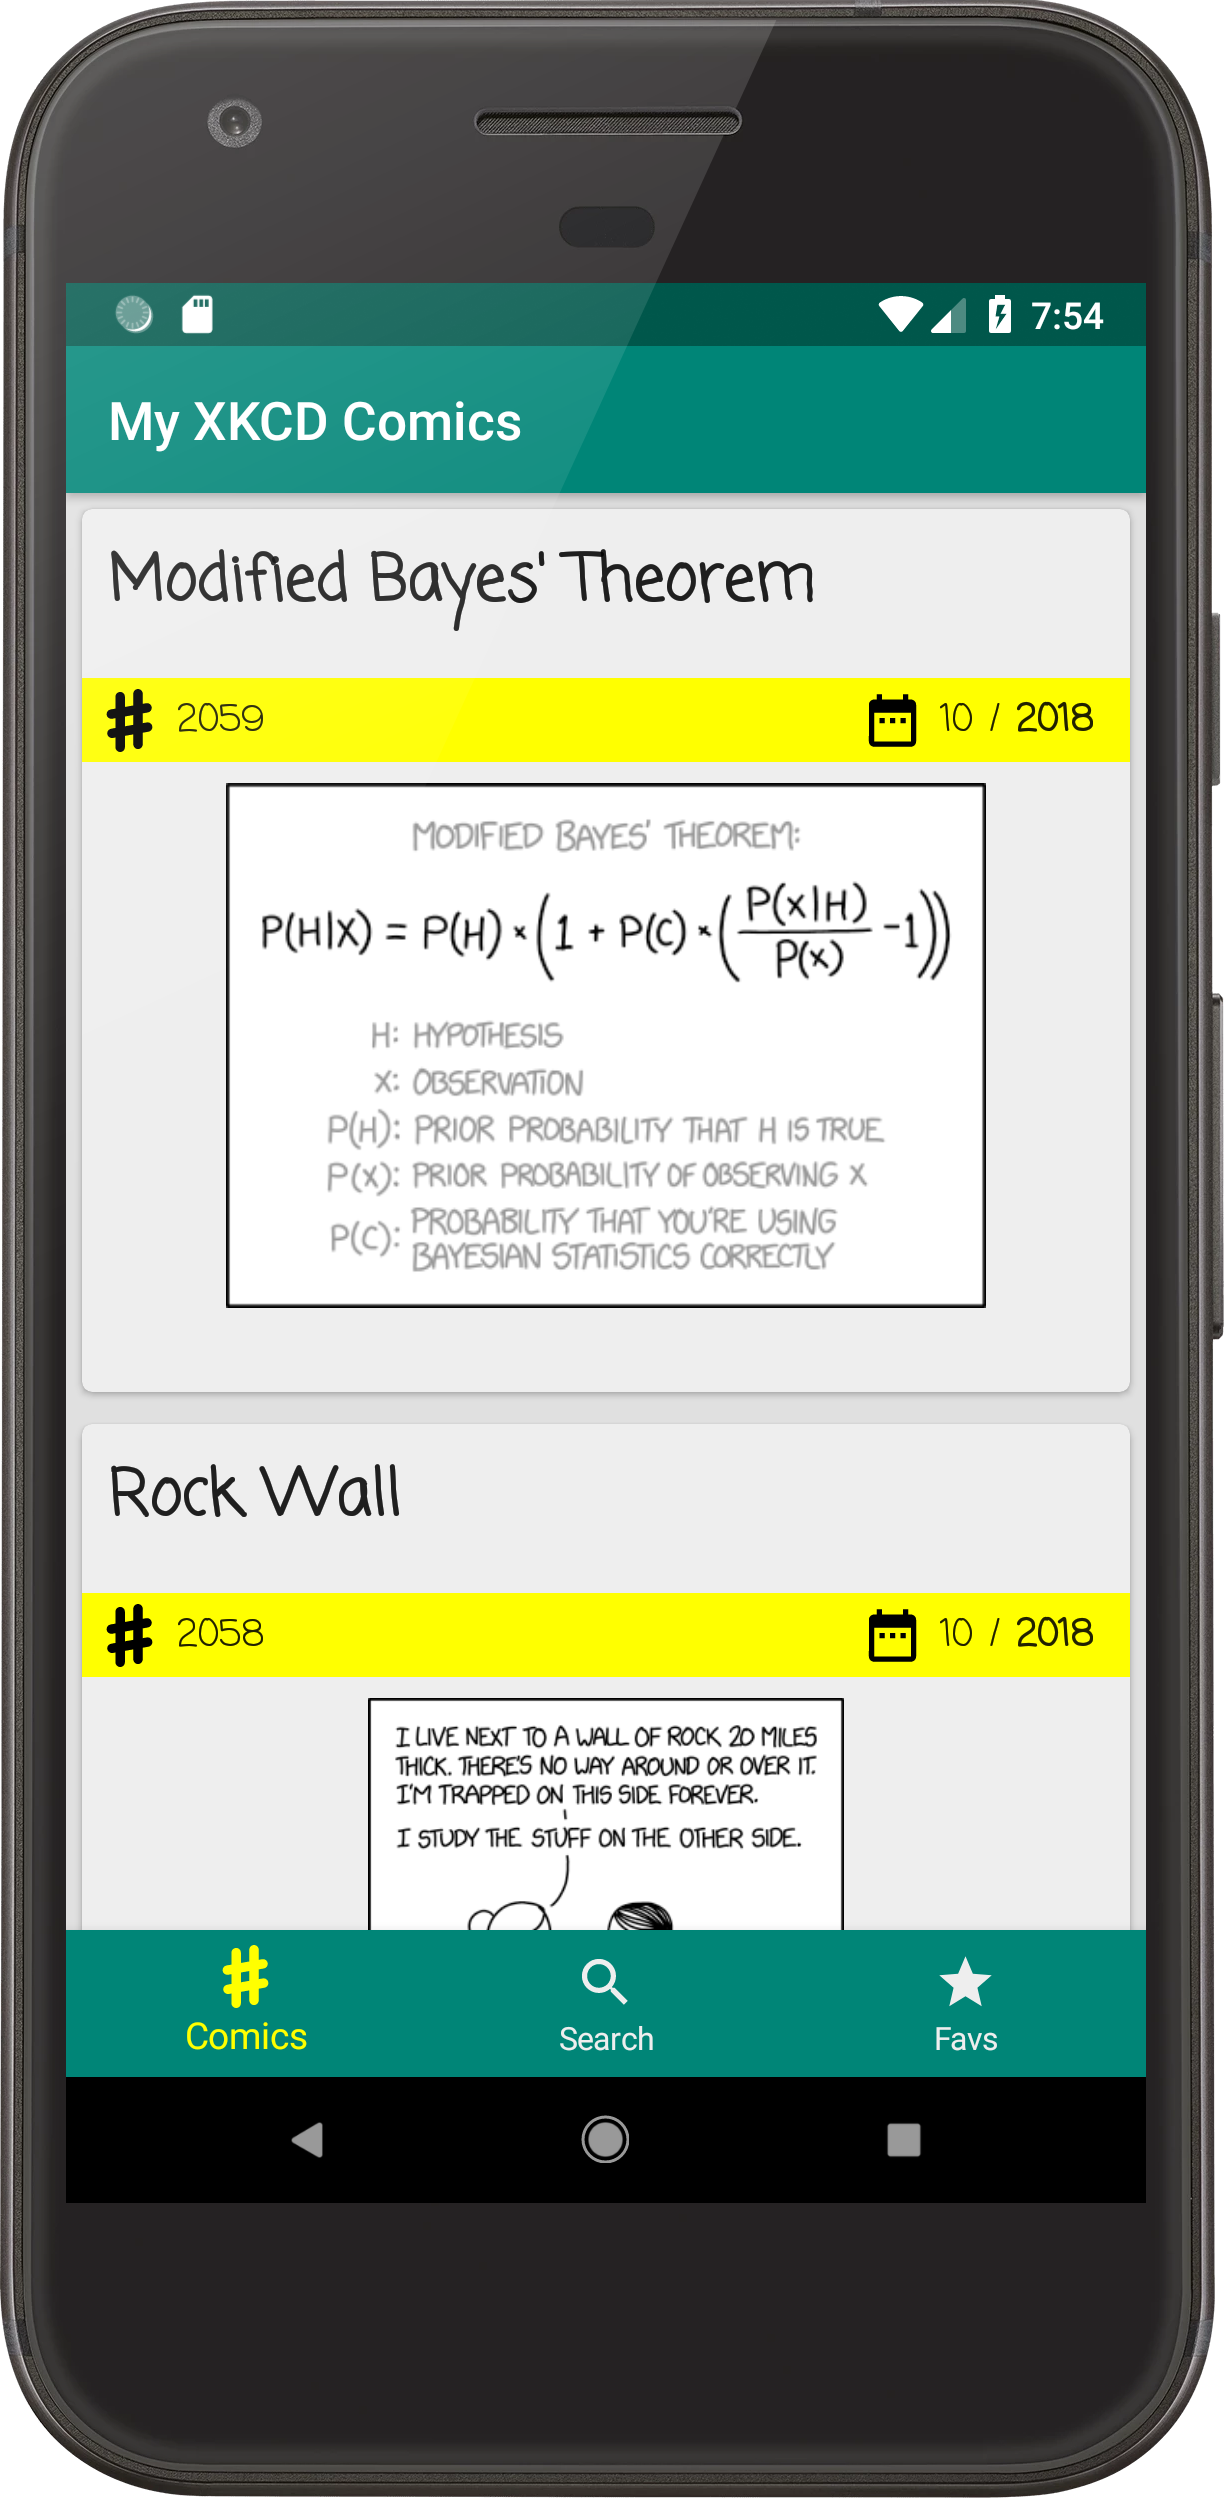 7:54
My XKCD Comics
Modified Bayes' Theorem
# 2059 10 / 2018
MODIFIED BAYES' THEOREM:
P(H|X) = P(H) × (1 + P(C) × (P(X|H)/P(X) - 1))
H: HYPOTHESIS
X: OBSERVATION
P(H): PRIOR PROBABILITY THAT H IS TRUE
P(X): PRIOR PROBABILITY OF OBSERVING X
P(C): PROBABILITY THAT YOU'RE USING
BAYESIAN STATISTICS CORRECTLY
Rock Wall
# 2058 10 / 2018
I LIVE NEXT TO A WALL OF ROCK 20 MILES
THICK. THERE'S NO WAY AROUND OR OVER IT.
I'M TRAPPED ON THIS SIDE FOREVER.
I STUDY THE STUFF ON THE OTHER SIDE.
#
Comics
Search
Favs